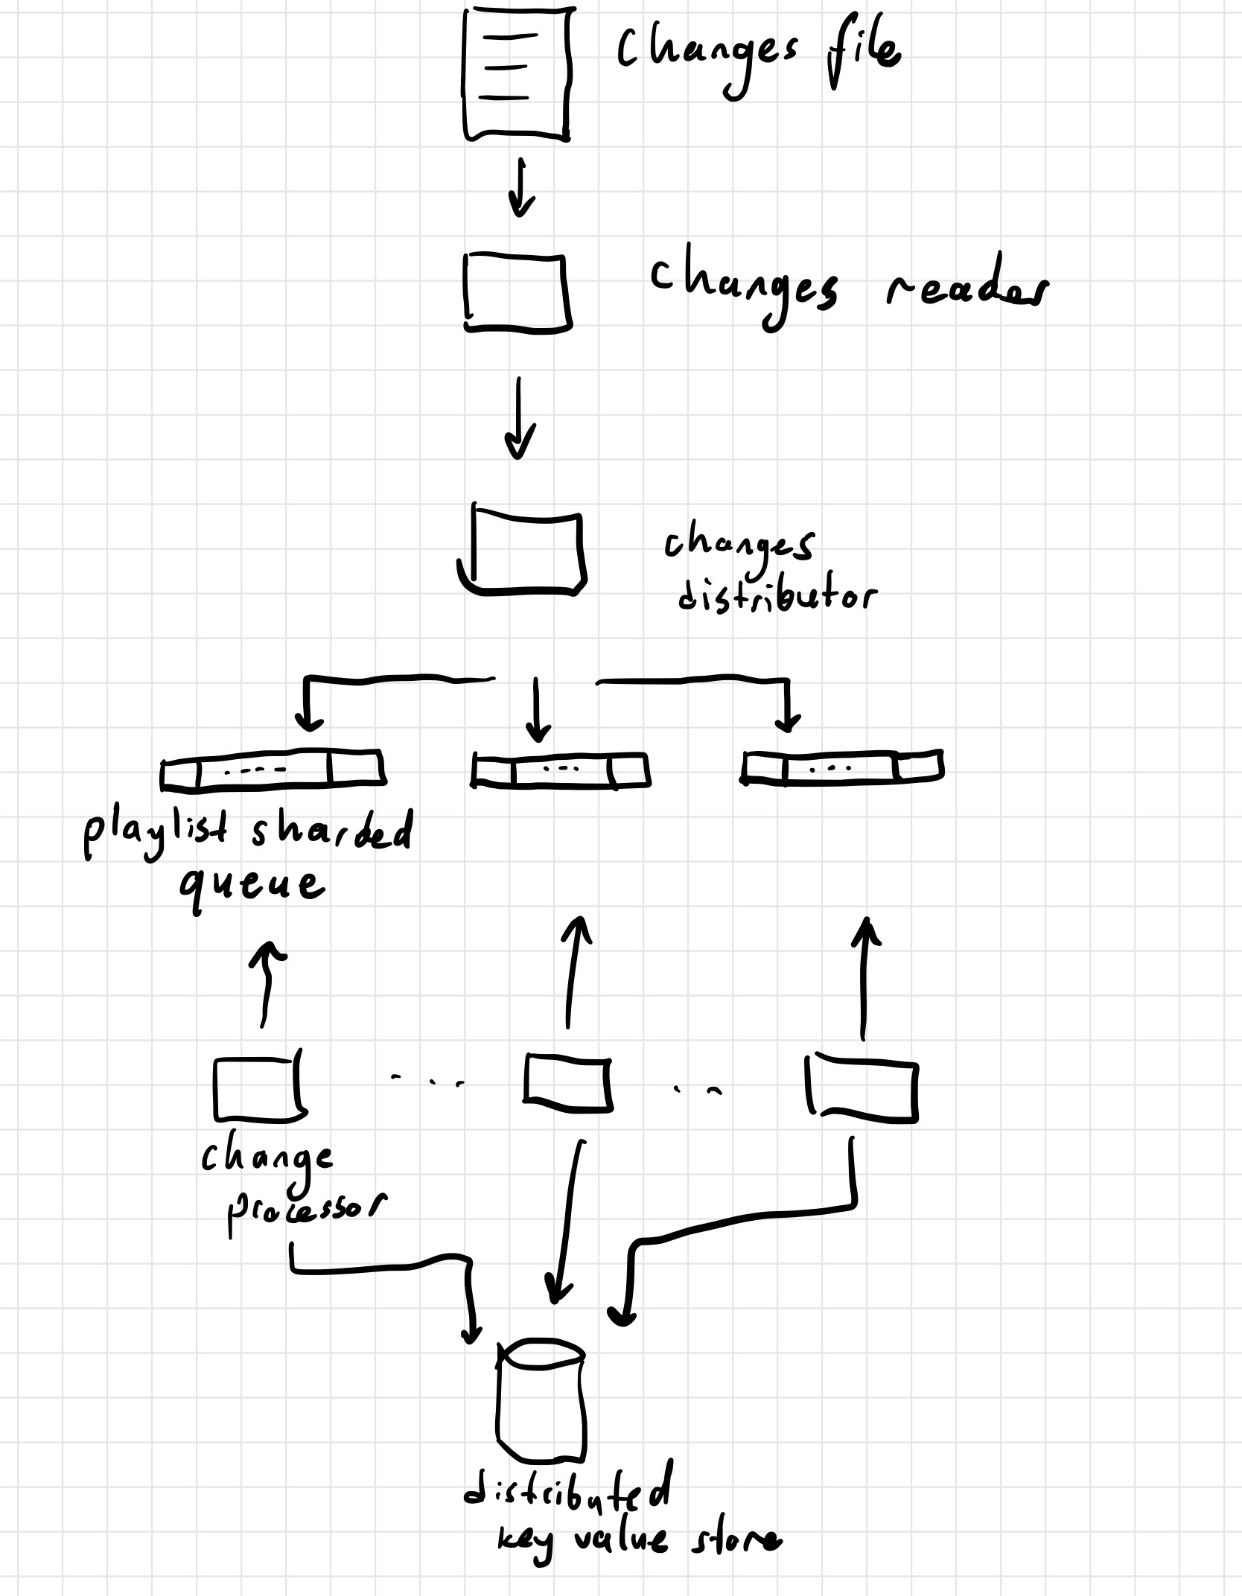 changes file
changes reader
changes
distributor
playlist sharded
queue
change
processor
distributed
key value store